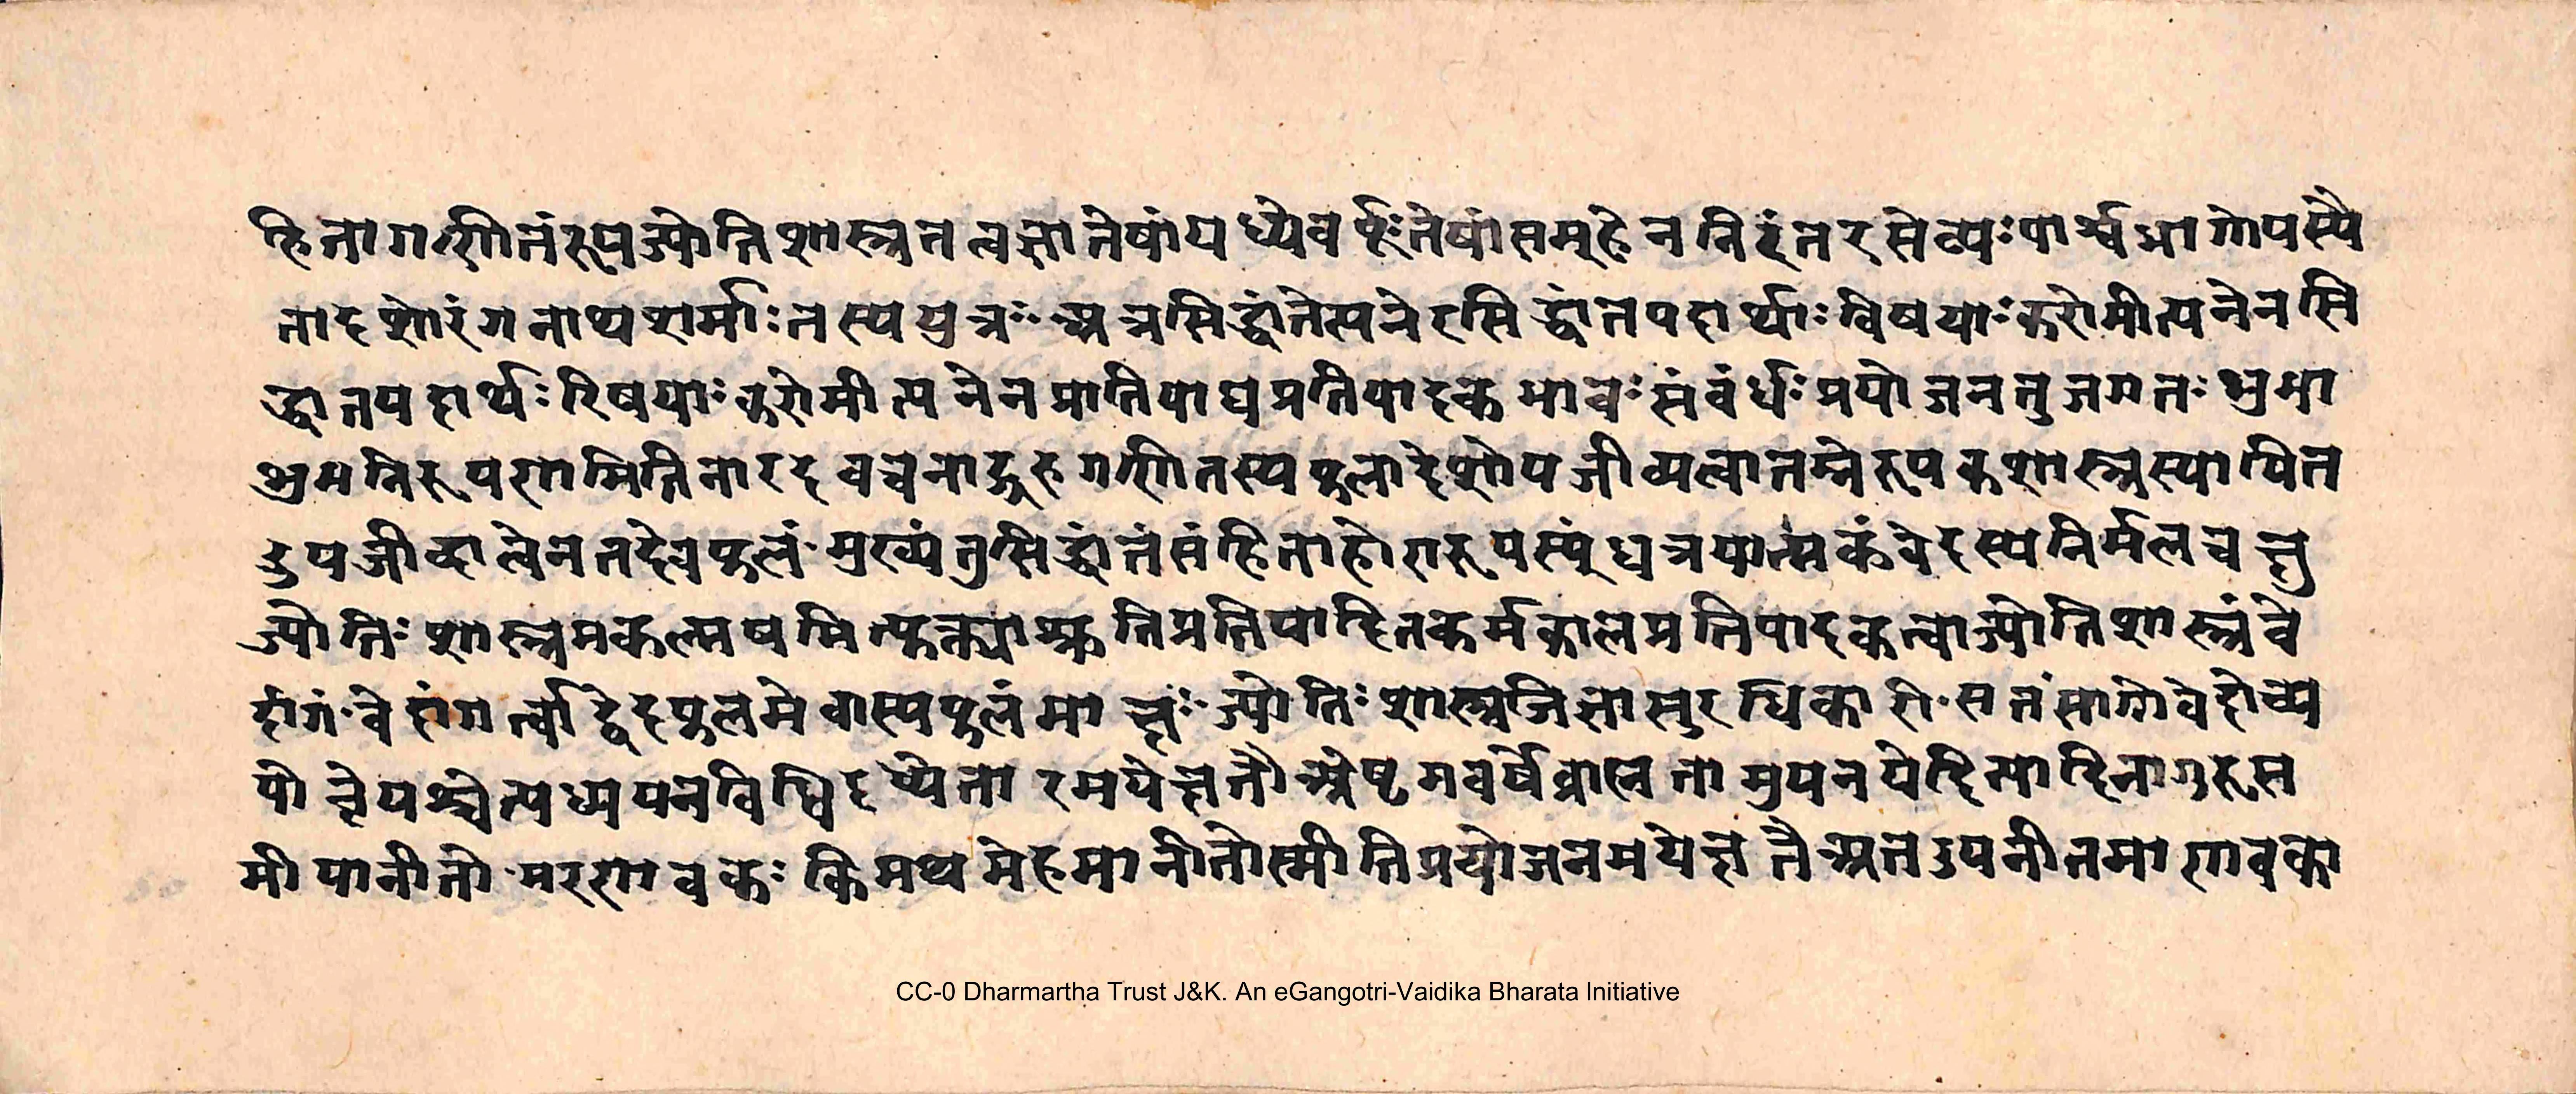 हिनागणीतंरूपज्योतिशास्त्रतत्वज्ञातेषांपध्येवर्ष्तूःतेषांसमूहेननिरंतरसेव्यःपार्श्वभागोपस्यै
तादृशोरंगनाथशर्माःतस्यपुत्रःअत्रसिद्धांतेत्पनेरसिद्धांतपदार्थाःविषयाःकरोमीत्यनेनसि
द्धातपदार्थःरिषयाःकरोमीत्यनेनप्रातिपाद्यप्रतिपादकभावःसंवंर्धःप्रयोजनतुजगतःभ्रुभा
भ्रुमनिरूपणमितिनारदवचनाद्रुहगणीतस्यफलादेशोपजीव्यत्वातम्नेरूपकशास्त्रस्यापित
दुपजीव्दात्वेनतदेवफलंमुख्यंतुसिद्धांतंसंहिताहोरारूपस्यंधत्रयात्मकंवेदस्यनिर्मलचक्षु
ज्योतिःशास्त्रमकल्मषमित्युक्त्याश्रुतिप्रतिपादितकर्मकालप्रतिपादकत्वाज्योतिशास्त्रंवे
दांगंवेदांगर्त्वाद्वेदफलमेवास्यफलंमात्तृःज्योतिःशास्त्रजिज्ञासुरधिकारीसतंसागोवेदोध्ये
योज्ञेयश्चेत्यध्ययनविधिदध्येतारमपेक्षतौअेष्टमवर्षेब्राह्मतामुपनयेदित्यादिनागुरुस
मीपानीतोमरणवकःकिमथमेहमानीतोस्मीतिप्रयोजनमपेक्षतैअतउपनीतमाणवका
CC-0 Dharmartha Trust J&K. An eGangotri-Vaidika Bharata Initiative